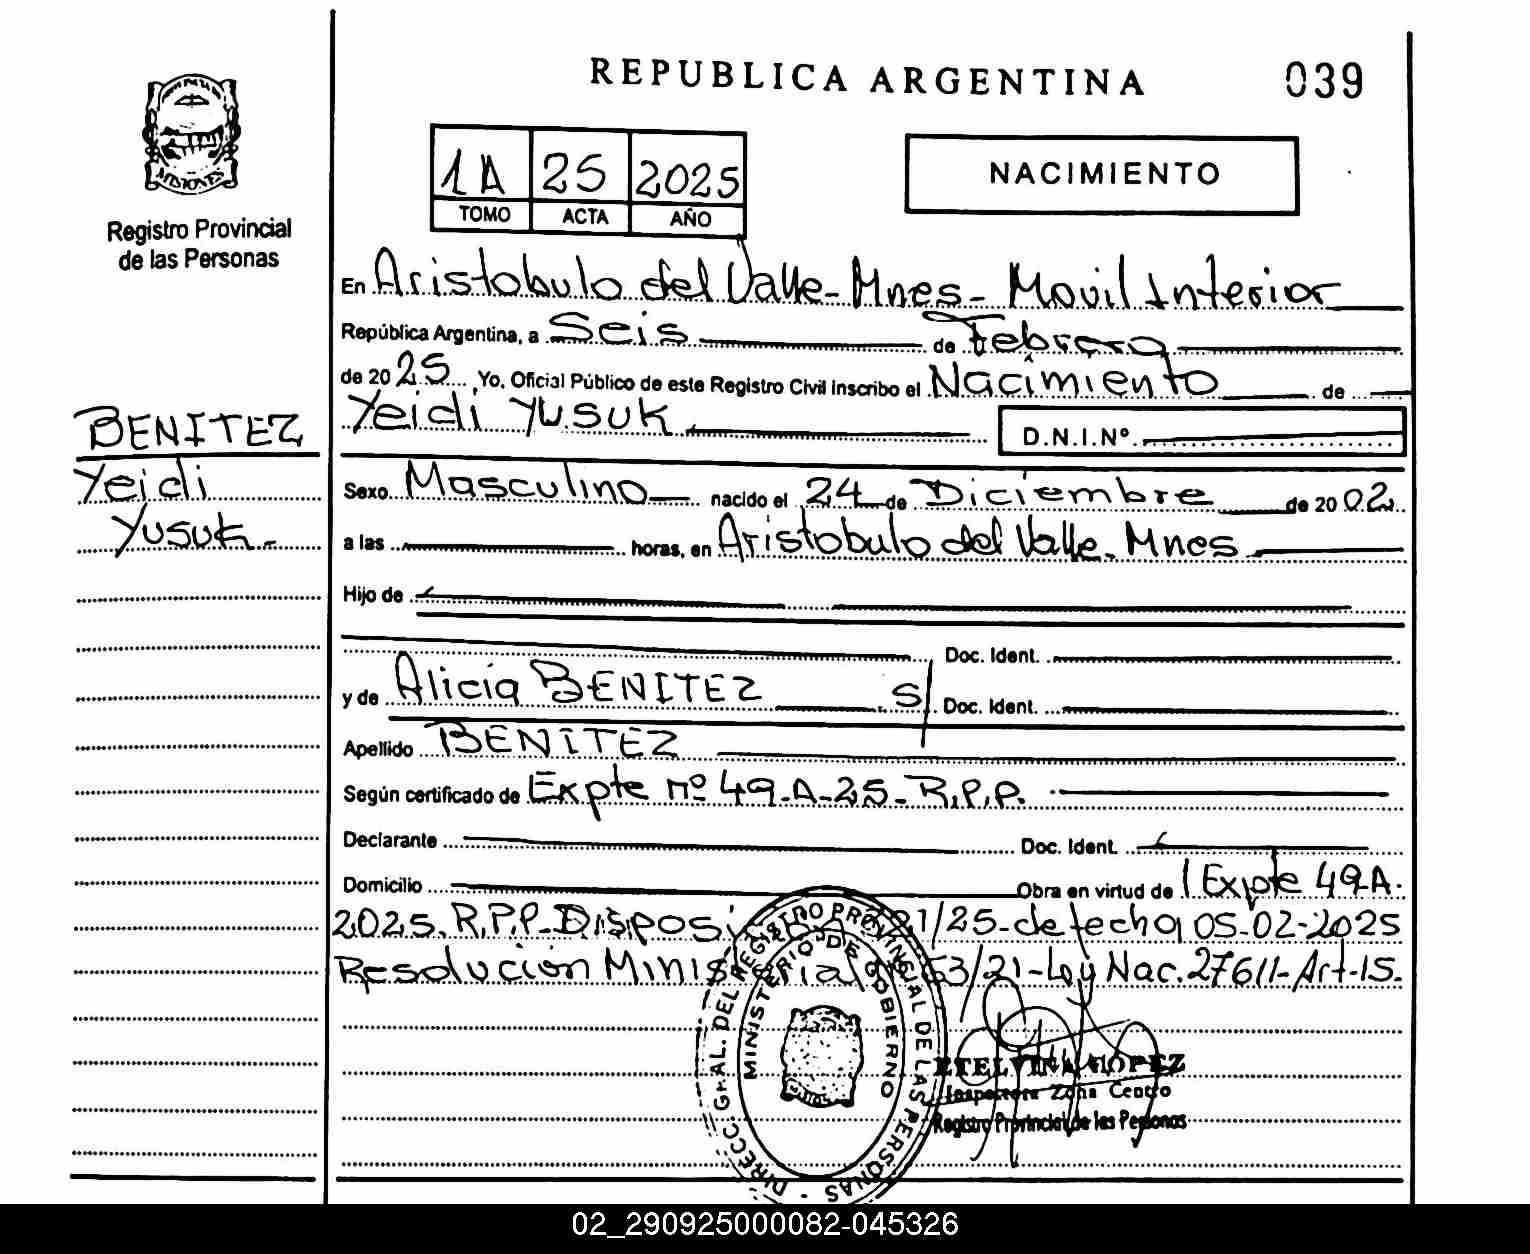 REPUBLICA ARGENTINA
039
MISIONES
Registro Provincial
de las Personas
1A 25 2025
TOMO ACTA AÑO
NACIMIENTO
En Aristobulo del Valle - Mnes - Movil Interior
República Argentina, a Seis de Febrero
de 2025 Yo, Oficial Público de este Registro Civil inscribo el Nacimiento de
Yeidi Yusuk
D.N.I.Nº
BENITEZ
Yeidi
Yusuk.-
Sexo Masculino nacido el 24 de Diciembre de 2002
a las horas, en Aristobulo del Valle. Mnes
Hijo de
Doc. Ident.
y de Alicia BENITEZ S/ Doc. Ident.
Apellido BENITEZ
Según certificado de Expte nº 49-A-25-R.P.P.
Declarante Doc. Ident.
Domicilio Obra en virtud de Expte 49-A.
2025. R.P.P. /25-de fecha 05-02-2025
Resolucion Ministerial /21-Ley Nac. 27611-Art-15.
DIRECC. GRAL. DEL REGISTRO PROVINCIAL DE LAS PERSONAS -
MINISTERIO DE GOBIERNO
ETELVINA LOPEZ
Inspectora Zona Centro
Registro Provincial de las Personas
02_290925000082-045326